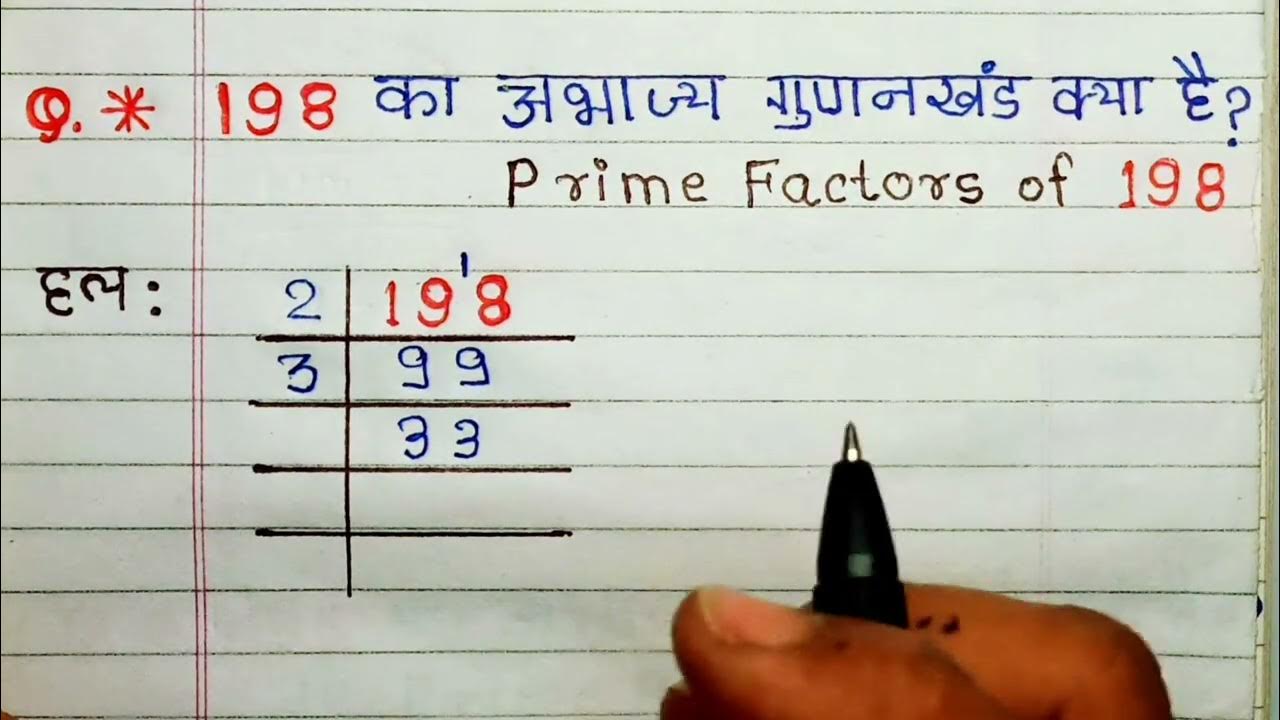 Q. * 198 का अभाज्य गुणनखंड क्या है?
Prime Factors of 198
हल :
1
2 | 198
3 | 99
33